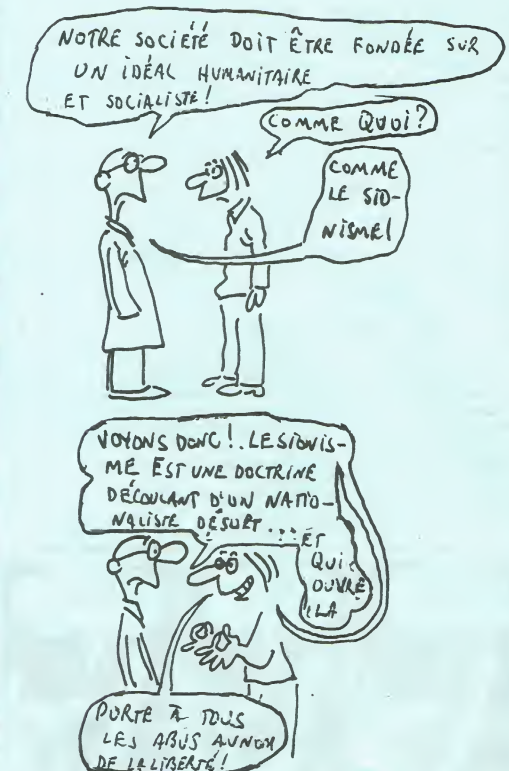 NOTRE SOCIÉTÉ DOIT ÊTRE FONDÉE SUR
UN IDÉAL HUMANITAIRE
ET SOCIALISTE!
COMME QUOI?
COMME
LE SIO-
NISME!
VOYONS DONC!. LE SIONIS-
ME EST UNE DOCTRINE
DÉCOULANT D'UN NATIO-
NALISTE DÉSUET...
ET
QUI
OUVRE
LA
PORTE À TOUS
LES ABUS AU NOM
DE LA LIBERTÉ!